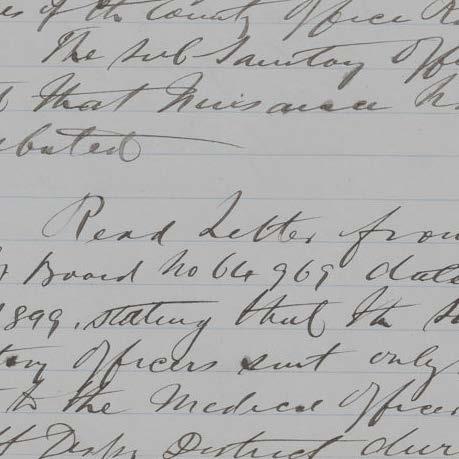 of the County Office
The sub Sanitary Off
that Nuisance h
bated
Read Letter from
Board No 64969 date
1899, stating that the S
Officers sent only
to the Medical Officer
District dur